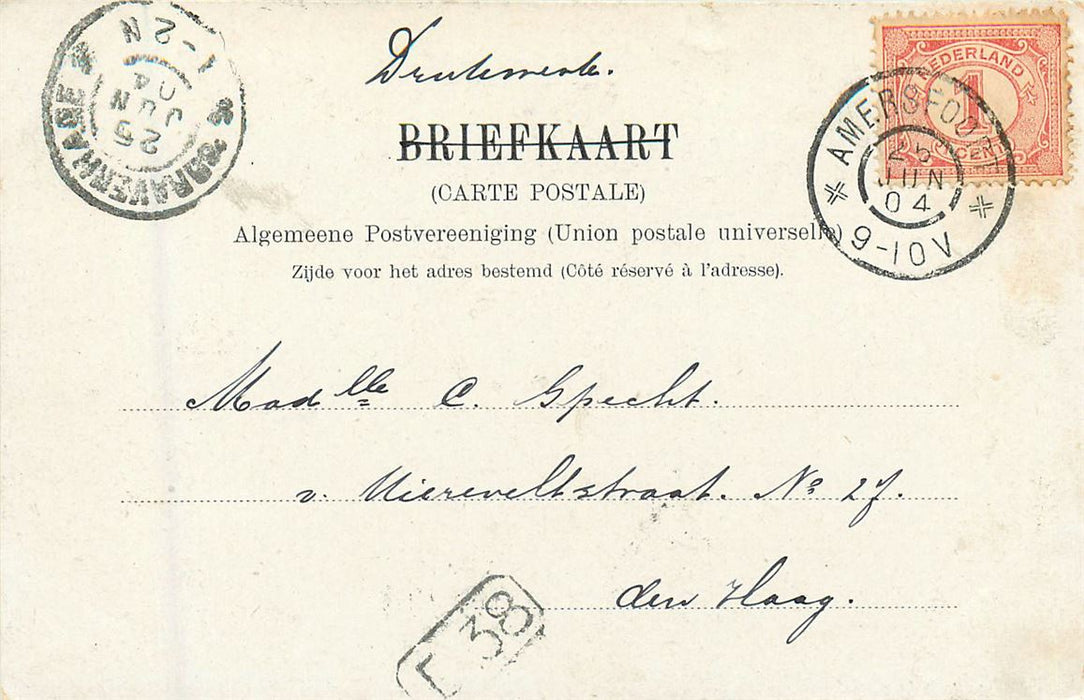 Drukwerk.
BRIEFKAART
(CARTE POSTALE)
Algemeene Postvereeniging (Union postale universelle)
Zijde voor het adres bestemd (Côté réservé à l'adresse).
NEDERLAND
1
CENT
AMERSFOORT
25
JUN
04
9-10V
'S GRAVENHAGE
25
JUN
04
1-2N
Madlle C. Specht.
v. Miereveltstraat. No 27.
den Haag.
38